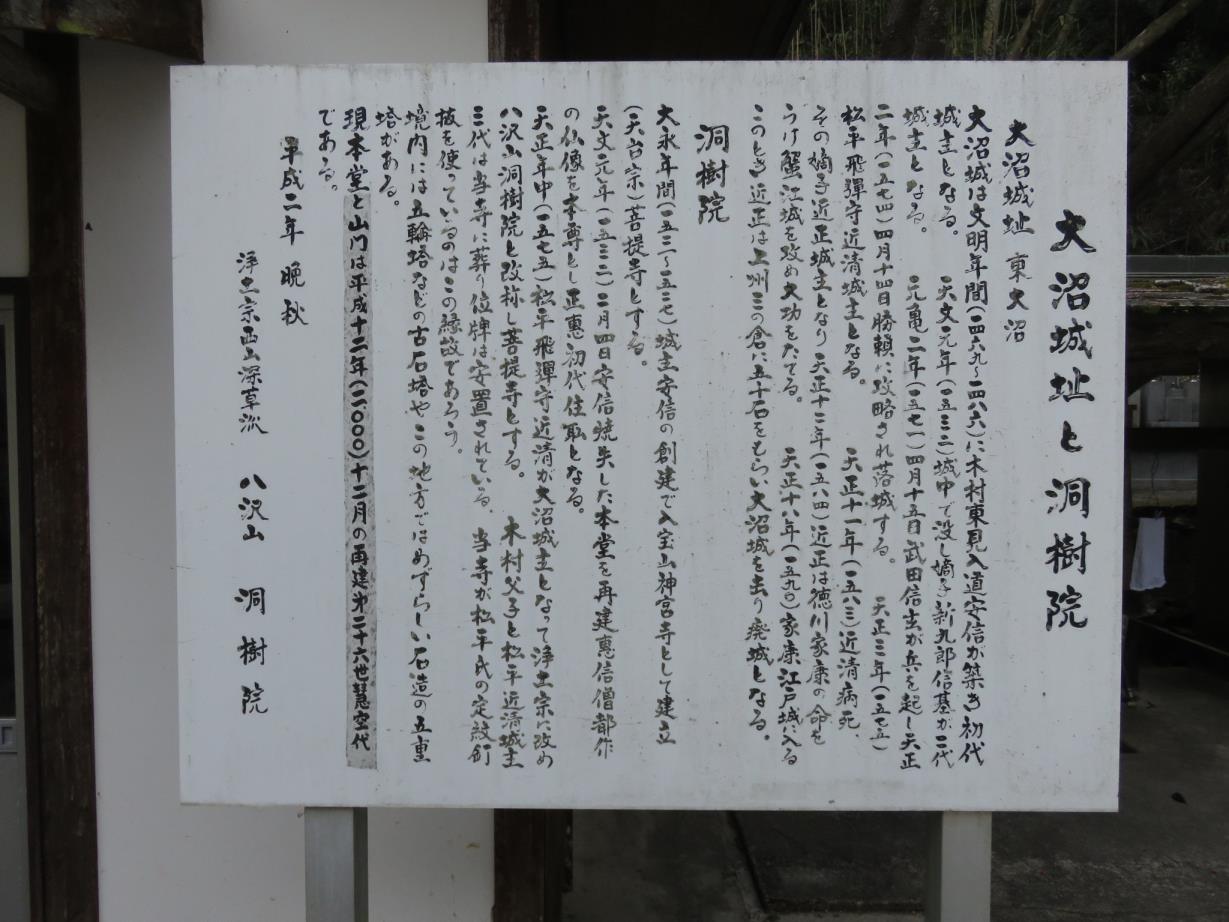 大沼城址と洞樹院
大沼城址 東大沼
大沼城は文明年間(一四六九~一四八六)に木村東見入道安信が築き初代
城主となる。 天文元年(一五三二)城中で没し嫡子新九郎信基が二代
城主となる。 元亀二年(一五七一)四月十五日武田信玄が兵を起し天正
二年(一五七四)四月十四日勝頼に攻略され落城する。 天正三年(一五七五)
松平飛彈守近清城主となる。 天正十一年(一五八三)近清病死、
その嫡子近正城主となり天正十二年(一五八四)近正は徳川家康の命を
うけ蟹江城を攻め大功をたてる。 天正十八年(一五九〇)家康江戸城に入る
このとき近正は上州三の倉に五十石をもらい大沼城を去り廃城となる。
洞樹院
大永年間(一五二一~一五二七)城主安信の創建で入宝山神宮寺として建立
(天台宗)菩提寺とする。
天文元年(一五三二)二月四日安信焼失した本堂を再建惠信僧都作
の仏像を本尊とし正惠初代住職となる。
天正年中(一五七五)松平飛彈守近清が大沼城主となって浄土宗に改め
八沢山洞樹院と改称し菩提寺とする。 木村父子と松平近清城主
三代は当寺に葬り位牌は安置されている。 当寺が松平氏の定紋釘
抜を使っているのはこの縁故であろう。
境内には五輪塔などの古石塔やこの地方ではめずらしい石造の五重
塔がある。
現本堂と山門は平成十二年(二〇〇〇)十二月の再建第二十六世慧空代
である。
平成二年 晩秋
浄土宗西山深草派 八沢山 洞樹院